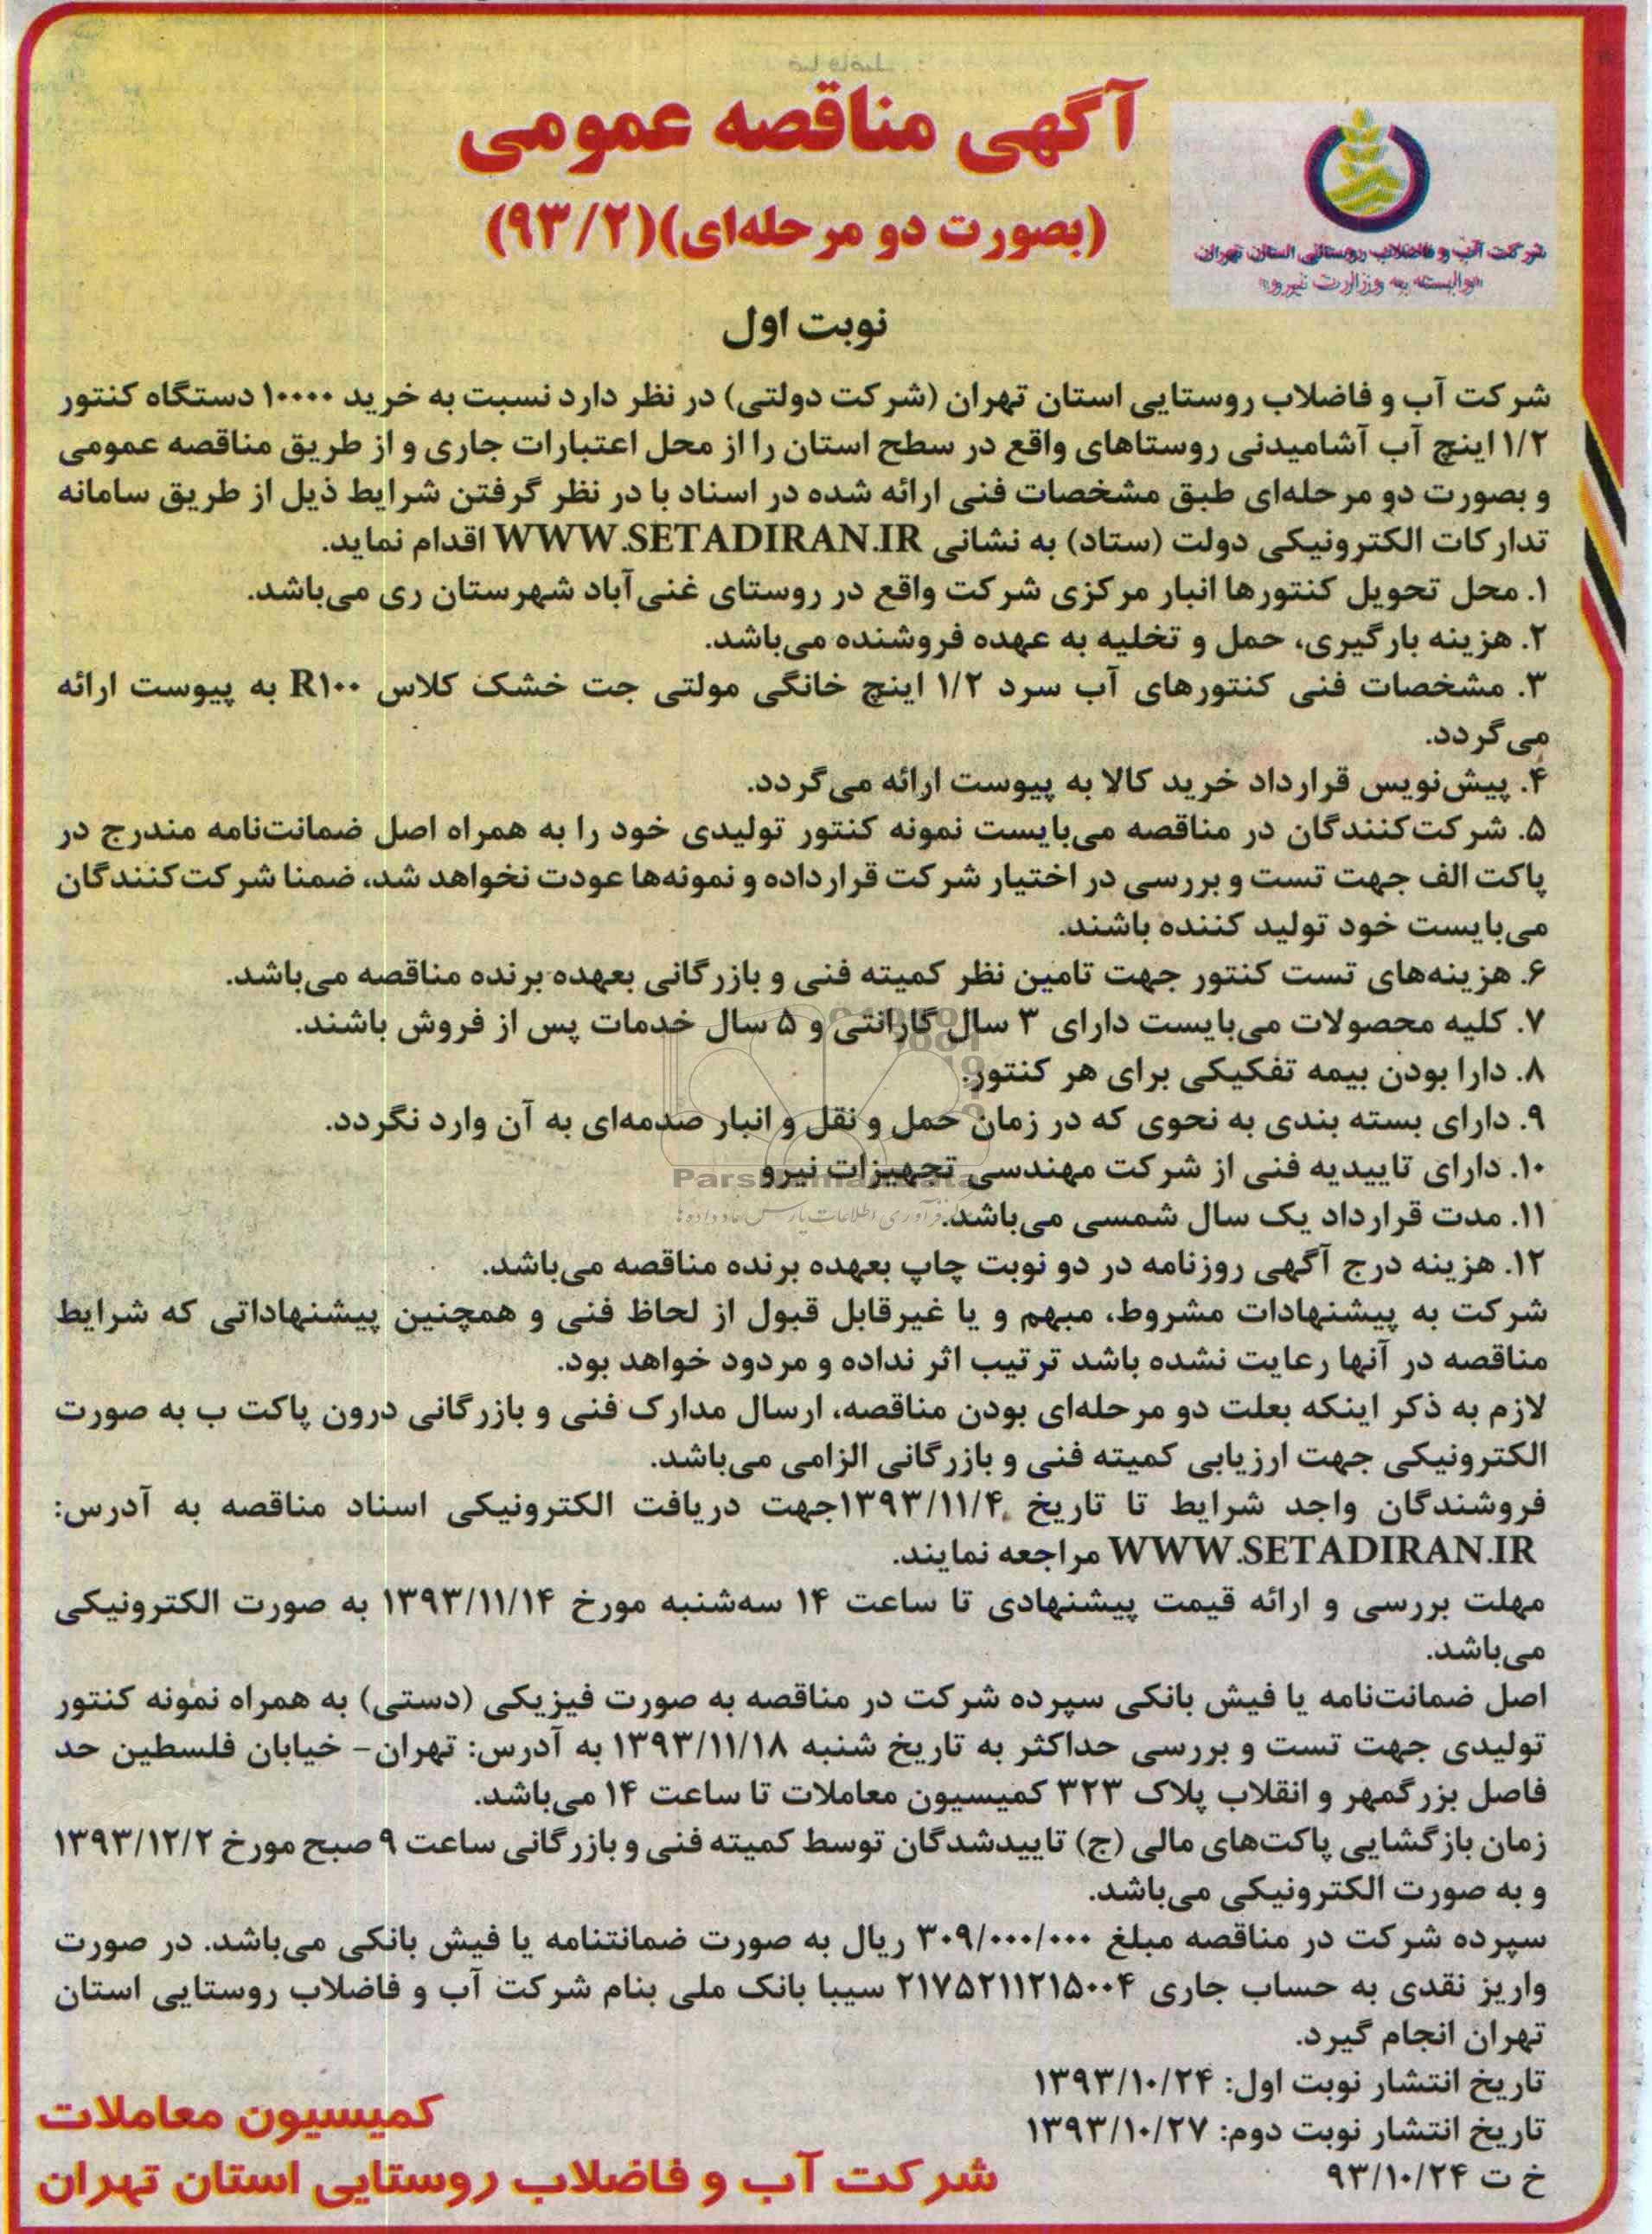 آگهی مناقصه عمومی
(بصورت دو مرحله‌ای)(۹۳/۲)
شرکت آب و فاضلاب روستائی استان تهران
«وابسته به وزارت نیرو»
نوبت اول
شرکت آب و فاضلاب روستایی استان تهران (شرکت دولتی) در نظر دارد نسبت به خرید ۱۰۰۰۰ دستگاه کنتور
۱/۲ اینچ آب آشامیدنی روستاهای واقع در سطح استان را از محل اعتبارات جاری و از طریق مناقصه عمومی
و بصورت دو مرحله‌ای طبق مشخصات فنی ارائه شده در اسناد با در نظر گرفتن شرایط ذیل از طریق سامانه
تدارکات الکترونیکی دولت (ستاد) به نشانی WWW.SETADIRAN.IR اقدام نماید.
۱. محل تحویل کنتورها انبار مرکزی شرکت واقع در روستای غنی‌آباد شهرستان ری می‌باشد.
۲. هزینه بارگیری، حمل و تخلیه به عهده فروشنده می‌باشد.
۳. مشخصات فنی کنتورهای آب سرد ۱/۲ اینچ خانگی مولتی جت خشک کلاس R۱۰۰ به پیوست ارائه
می‌گردد.
۴. پیش‌نویس قرارداد خرید کالا به پیوست ارائه می‌گردد.
۵. شرکت‌کنندگان در مناقصه می‌بایست نمونه کنتور تولیدی خود را به همراه اصل ضمانت‌نامه مندرج در
پاکت الف جهت تست و بررسی در اختیار شرکت قرار داده و نمونه‌ها عودت نخواهد شد، ضمنا شرکت‌کنندگان
می‌بایست خود تولید کننده باشند.
۶. هزینه‌های تست کنتور جهت تامین نظر کمیته فنی و بازرگانی بعهده برنده مناقصه می‌باشد.
۷. کلیه محصولات می‌بایست دارای ۳ سال گارانتی و ۵ سال خدمات پس از فروش باشند.
۸. دارا بودن بیمه تفکیکی برای هر کنتور.
۹. دارای بسته بندی به نحوی که در زمان حمل و نقل و انبار صدمه‌ای به آن وارد نگردد.
۱۰. دارای تاییدیه فنی از شرکت مهندسی تجهیزات نیرو
۱۱. مدت قرارداد یک سال شمسی می‌باشد.
۱۲. هزینه درج آگهی روزنامه در دو نوبت چاپ بعهده برنده مناقصه می‌باشد.
شرکت به پیشنهادات مشروط، مبهم و یا غیرقابل قبول از لحاظ فنی و همچنین پیشنهاداتی که شرایط
مناقصه در آنها رعایت نشده باشد ترتیب اثر نداده و مردود خواهد بود.
لازم به ذکر اینکه بعلت دو مرحله‌ای بودن مناقصه، ارسال مدارک فنی و بازرگانی درون پاکت ب به صورت
الکترونیکی جهت ارزیابی کمیته فنی و بازرگانی الزامی می‌باشد.
فروشندگان واجد شرایط تا تاریخ ۱۳۹۳/۱۱/۴جهت دریافت الکترونیکی اسناد مناقصه به آدرس:
WWW.SETADIRAN.IR مراجعه نمایند.
مهلت بررسی و ارائه قیمت پیشنهادی تا ساعت ۱۴ سه‌شنبه مورخ ۱۳۹۳/۱۱/۱۴ به صورت الکترونیکی
می‌باشد.
اصل ضمانت‌نامه یا فیش بانکی سپرده شرکت در مناقصه به صورت فیزیکی (دستی) به همراه نمونه کنتور
تولیدی جهت تست و بررسی حداکثر به تاریخ شنبه ۱۳۹۳/۱۱/۱۸ به آدرس: تهران- خیابان فلسطین حد
فاصل بزرگمهر و انقلاب پلاک ۳۲۳ کمیسیون معاملات تا ساعت ۱۴ می‌باشد.
زمان بازگشایی پاکت‌های مالی (ج) تاییدشدگان توسط کمیته فنی و بازرگانی ساعت ۹ صبح مورخ ۱۳۹۳/۱۲/۲
و به صورت الکترونیکی می‌باشد.
سپرده شرکت در مناقصه مبلغ ۳۰۹/۰۰۰/۰۰۰ ریال به صورت ضمانتنامه یا فیش بانکی می‌باشد. در صورت
واریز نقدی به حساب جاری ۲۱۷۵۲۱۱۲۱۵۰۰۴ سیبا بانک ملی بنام شرکت آب و فاضلاب روستایی استان
تهران انجام گیرد.
تاریخ انتشار نوبت اول: ۱۳۹۳/۱۰/۲۴
تاریخ انتشار نوبت دوم: ۱۳۹۳/۱۰/۲۷
خ ت ۹۳/۱۰/۲۴
کمیسیون معاملات
شرکت آب و فاضلاب روستایی استان تهران